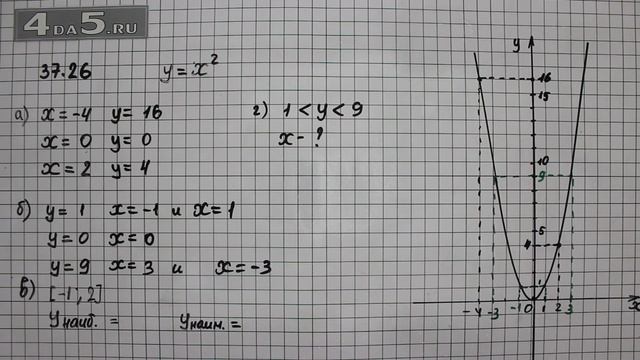 4DA5.RU
37.26 y = x²
а) x = -4 y = 16
x = 0 y = 0
x = 2 y = 4
б) y = 1 x = -1 и x = 1
y = 0 x = 0
y = 9 x = 3 и x = -3
в) [-1; 2]
Yнаиб. = Yнаим. =
г) 1 < y < 9
x - ?
y
16
15
10
9
5
4
1
-4 -3 -1 0 1 2 3 x